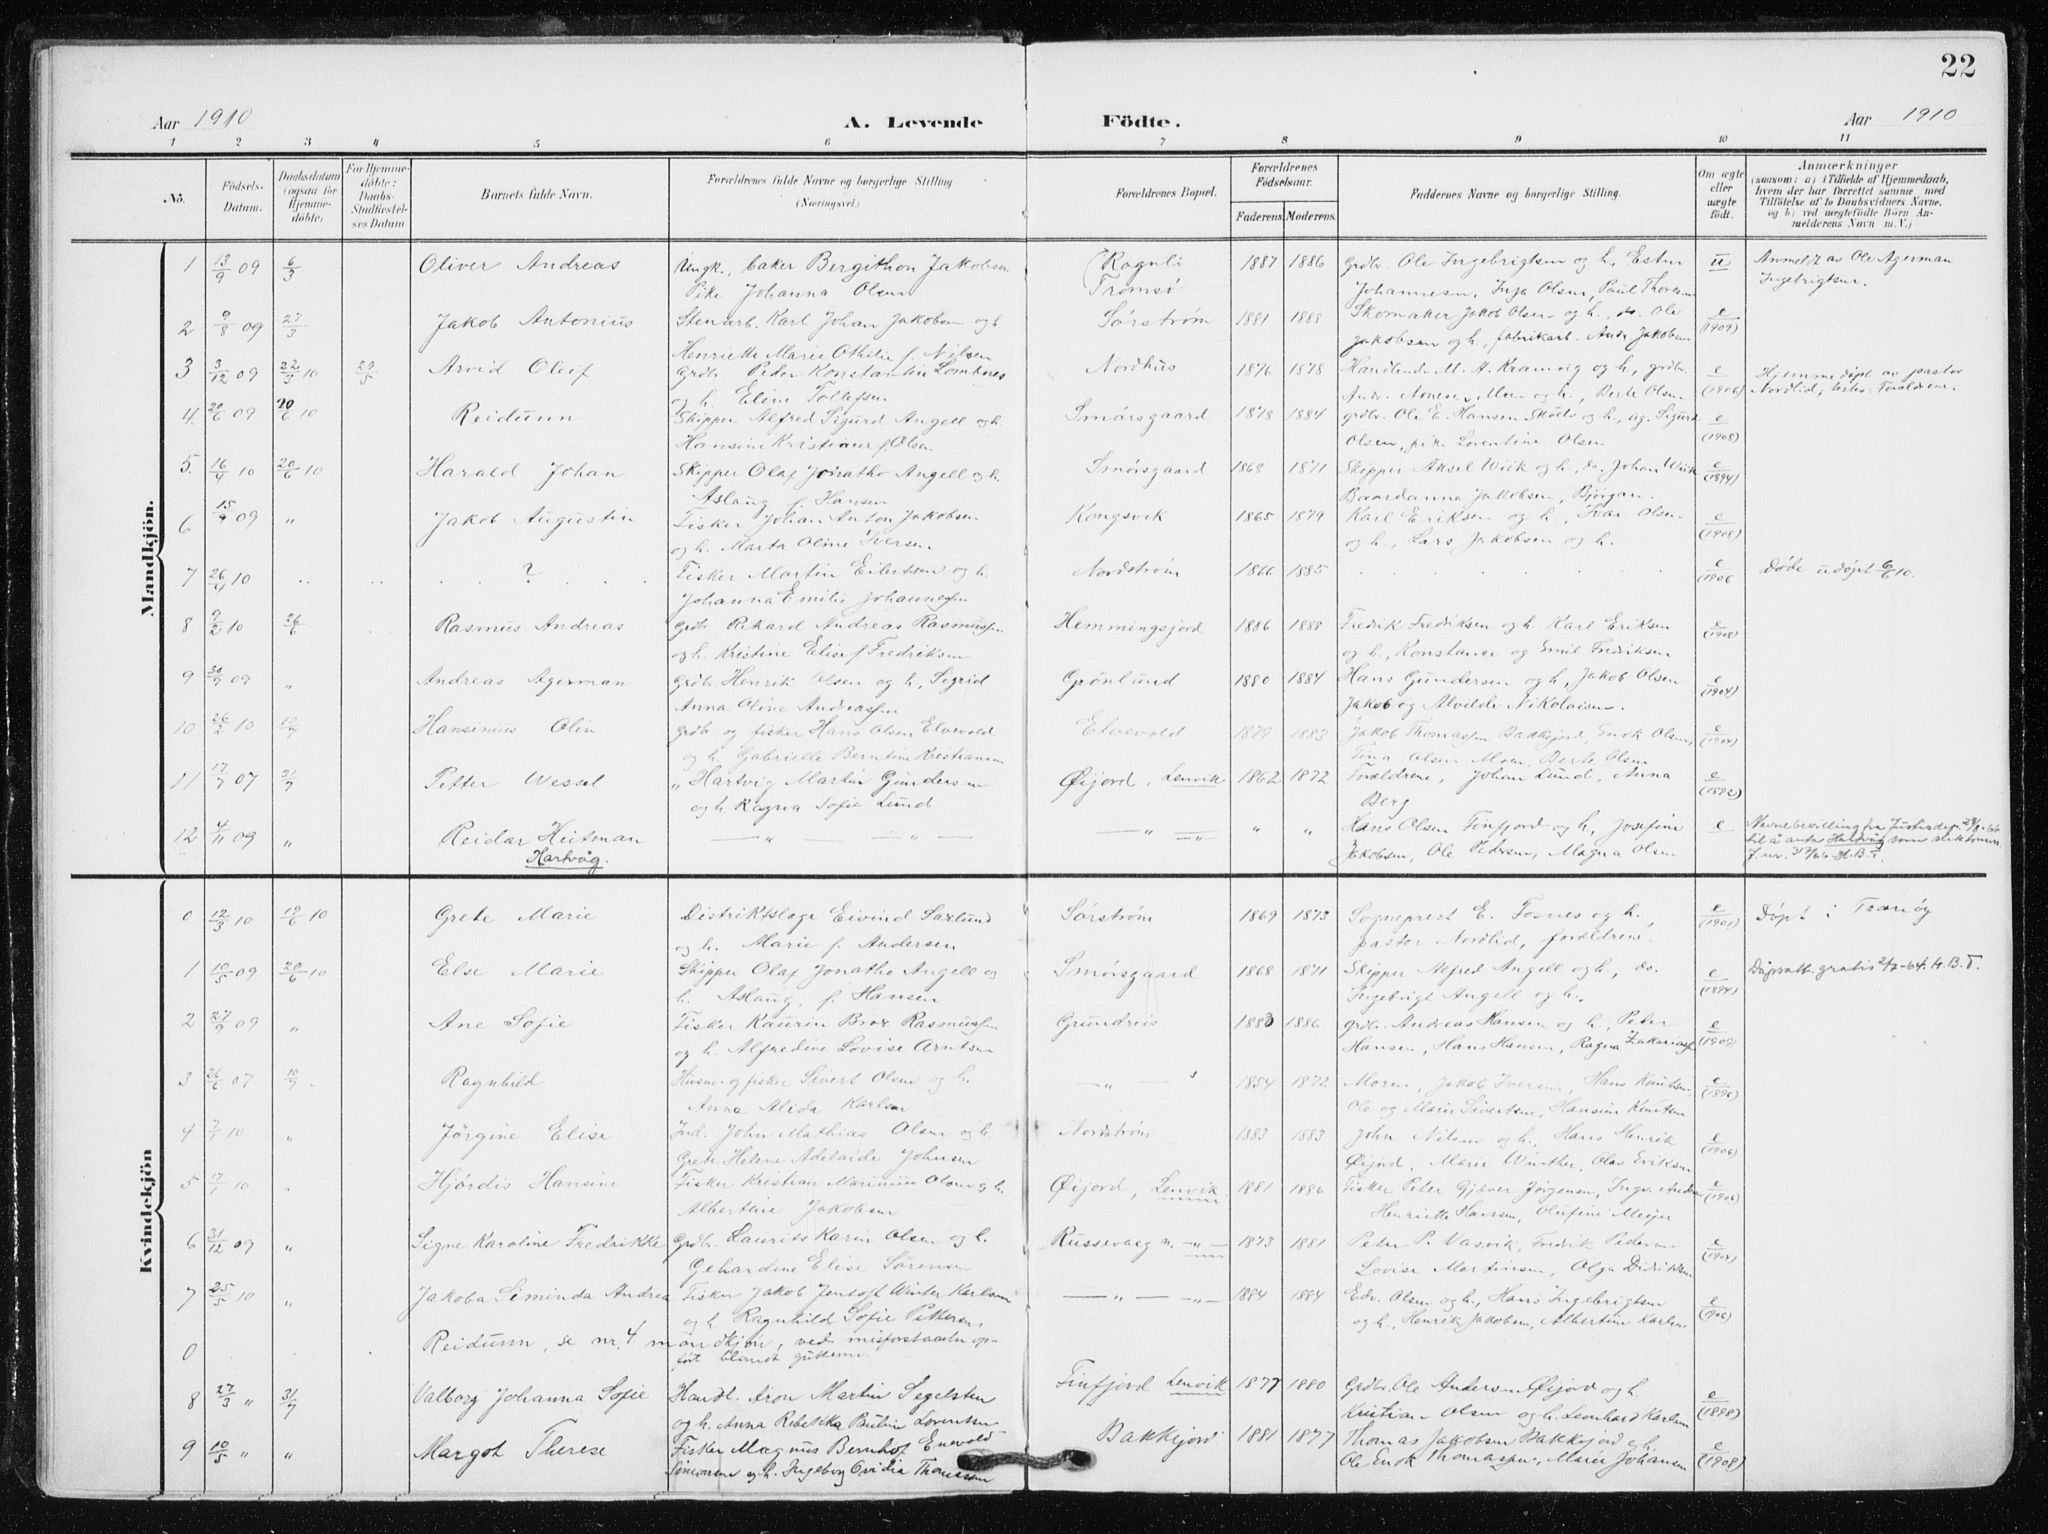 22
Aar 1910 A. Levende Födte. Aar 1910
1 2 3 4 5 6 7 8 9 10 11
No. Födsels-Datum. Daabsdatum (ogsaa for Hjemmedöbte) For Hjemmedöbte: Daabs-Stadfæstelses Datum Barnets fulde Navn. Forældrenes fulde Navne og borgerlige Stilling (Næringsvei.) Forældrenes Bopæl. Forældrenes Födselsaar. Faderens. Moderens. Faddernes Navne og borgerlige Stilling. Om ægte eller uægte födt. Anmærkninger (saasom: a) i Tilfælde af Hjemmedaab, hvem der har forrettet samme, med Tilföielse af to Daabsvidners Navne, og b) ved uægtefödte Börn Anmelderens Navn m. V.)
Mandkjön.
1 13/9 09 6/3 Oliver Andreas Ungk., baker Bergithon Jakobsen Rognli 1887 1886 Grdbr. Ole Ingebrigtsen og h., Ester u Anmeldt av Ole Agerman
Pike Johanna Olsen Tromsø Johannesen, Inga Olsen, Paul Thoresen Ingebrigtsen.
2 9/8 09 27/3 Jakob Antonius Stenarb. Karl Johan Jakobsen og h Sørstrøm 1881 1888 Skomaker Jakob Olsen og h., do. Ole e (1909)
Henriette Marie Othilie f. Nilsen Jakobsen og h., fabrikarb. Andr. Jakobsen
3 3/12 09 22/3 10 29/5 Arvid Oleif Grdbr. Peder Konstantin Lomknes Nordhus 1876 1878 Handlende M. A. Kramvig og h., grdbr. e (1906) Hjemmedøpt av pastor
og h. Eline Tollefsen Andr. Moen og h., Berte Olsen Nordlid; testes: Foreldrene.
4. 20/6 09 20/6 10 Reidunn Skipper Alfred Sigurd Angell og h. Smørsgaard 1878 1884 grdbr. Ole E. Hansen og h., ug. Sigurd e (1908)
Hansine Kristiane f. Olsen Olsen, pike Lorentine Olsen
5. 16/4 10 20/6 10 Harald Johan Skipper Olaf Jonatho Angell og h. Smørsgaard 1868 1871 Skipper Aksel Wiik og h., do. Johan Wiik e (1894)
Aslaug f. Hansen Baardanna Jakobsen, Bjorgan.
6 15/9 09 " Jakob Augustin Fisker Johan Anton Jakobsen Kongsvik 1865 1879 Karl Eriksen og h., Ivar Olsen e (1908)
og h. Marta Oline Iversen og h., Lars Jakobsen og h.
7 26/4 10 . . . . . . ? . . . Fisker Martin Eilertsen og h. Nordstrøm 1866 1885 . . . . e (1906 Døde udøpt 6/6 10.
Johanna Emilie Johannessen
8 9/2 10 26/6 Rasmus Andreas Grdbr. Rikard Andreas Rasmussen Hemmingsjord 1886 1888 Fredrik Fredriksen og h. Karl Eriksen e (1908)
og h. Kristine Elise f. Fredriksen og h., Konstance og Emil Fredriksen
9 30/9 09 " Andreas Agerman Grdbr. Henrik Olsen og h., Sigrid Grønlund 1880 1884 Hans Gundersen og h., Jakob Olsen e (1904)
Anna Oline Andreassen Jakob og Alvilde Nikolaisen.
10 26/2 10 Hansinius Olin Grdbr. og fisker Hans Olsen Elvevold Elvevold 1879 1883 Jakob Thomassen Bakkejord, Enok Olsen, e
og h. Gabrielle Berntine Kristiansen Tina Olsen Moen, Berte Olsen
11 17/7 07 31/7 Petter Wessel " Hartvig Martin Gundersen Øijord, Lenvik 1862 1872 Forældrene, Johan Lund, Anna e (1892)
og h. Ragna Sofie Lund Berg
12 4/11 09 " Reidar Heitman — " — — " — — " — " " Hans Olsen Finfjord og h., Josefine e Navnebevilling fra Justisdep.
Hartvåg. Jakobsen, Ole Pedersen, Magna Olsen til å anta Hartvåg som slektsnavn
H.B.T.
Kvindekjön
0 12/3 10 19/6 10 Grete Marie Distriktslæge Eivind Saxlund Sørstrøm 1869 1873 Sogneprest E. Fosnes og h., e (1901) Døpt i Tranøy
og h. Marie f. Andersen pastor Nordlid, forældrene.
1 10/5 09 20/6 10 Else Marie Skipper Olaf Jonatho Angell og Smørsgaard 1868 1871 Skipper Alfred Angell og h., do. e (1894) Dåpsatt. gratis 2/7-64. H.B.T.
h. Aslaug, f. Hansen Ingebrigt Angell og h.
2 27/9 09 " Ane Sofie Fisker Kaurin Broz Rasmussen Grundreis 1883 1886 Grdbr. Andreas Hansen og h., Peter e (1909)
og h. Alfredine Lovise Arntsen Hansen, Hans Hansen, Ragna Zakariass
3 26/6 07 10/7 Ragnhild Husm. og fisker Sivert Olsen og h. — " — 1854 1872 Moren, Jakob Iversen, Hans Knutsen e
Anna Alida Karlsen Ole og Marie Sivertsen, Hansine Knutsen
4 7/1 10 " Jørgine Elise Ind. John Mathias Olsen og h. Nordstrøm 1883 1883 John Nilsen og h., Hans Henrik e (1906)
Grete Helene Adelaide Johnsen Øijord, Marie Winther, Olas Eriksen
5 17/1 10 " Hjørdis Hansine Fisker Kristian Marinius Olsen og h. Øijord, Lenvik 1881 1886 Fisker Peter Gjæver Jørgensen, Ingv. Andrs e (1906)
Albertine Jakobsen Henriette Hansen, Olufine Meyer
6 31/12 09 " Signe Karoline Fredrikke Grdbr. Laurits Karin Olsen og h. Russevaag n. — " — 1873 1881 Peter P. Vasvik, Fredrik Pedersen e
Gehardine Elise Sørensen Lovise Martinsen, Olga Didriksen
7 25/5 10 " Jakoba Seminda Andrea Fisker Jakob Jentoft Winter Karlsen — " — — " — 1884 1884 Edv. Olsen og h., Hans Ingebrigtsen e
og h. Ragnhild Sofie Pettersen og h., Henrik Jakobsen, Albertine Karlsen
0 Reidunn, se nr. 4 mandkjøn, ved misforstaaelse op-
ført blandt guttene.
8 27/3 " 31/7 Valborg Johanna Sofie Handl. Aron Martin Segelsten Finfjord Lenvik 1877 1880 Grdbr. Ole Andersen Øijord og h. e (1898)
og h. Anna Rebekka Pauline Lorentsen Kristian Olsen og h. Leonhard Karlsen
9 10/5 " " Margot Therese Fisker Magnus Bernhof Enevold Bakkejord 1881 1877 Thomas Jakobsen Bakkejord og h. e (1908)
Simonsen og h. Ingeborg Ovidia Thomassen Ole Enok Thomassen, Marie Johansen